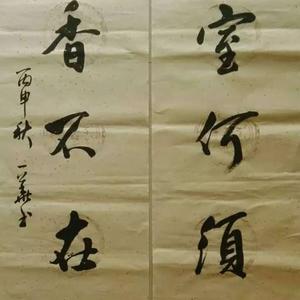 室何須
香不在
丙申秋一美书